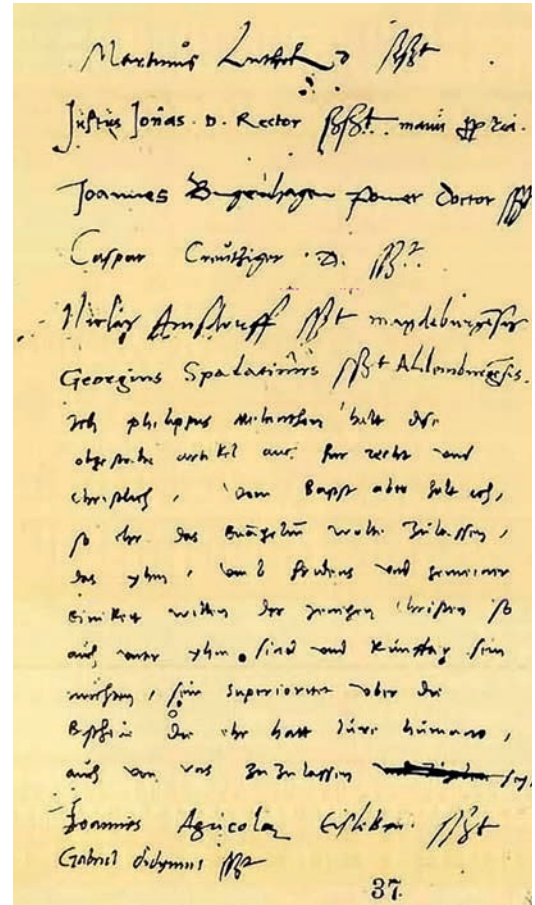 Martinus Luther D sszt
Justus Jonas. D. Rector sszt. manu ppria.
Joannes Bugenhagen Pomer Doctor sszt
Caspar Creutziger D. sszt.
Niclas Amsdorff sszt magdeburgensis
Georgius Spalatinus sszt Aldenburgensis.
Ich philippus Melanthon halt diße
obgestelte artikel auch fur recht und
christlich, vom Bapst aber halt ich,
so ehr das Euãgeliũ wolte zulassen,
das yhm, umb fridens und gemeiner
einikeit willen der jenigen Christen so
auch unter yhm sind und kunfftig sein
mochten, sein superioritet uber die
Bischoue die ehr hatt iure humano,
auch von uns zuzulassen sey.
Joannes Agricola Eisleben. sszt
Gabriel didymus sszt
37.